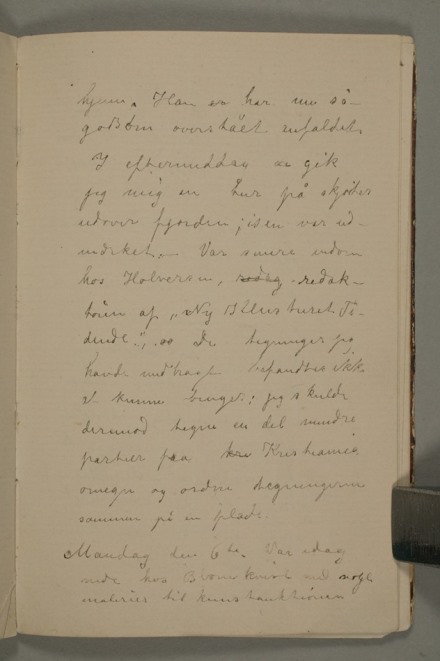 hjem. Han har nu så-
godtsom overstået anfaldet.
I eftermiddag gik
jeg mig en tur på skjöiter
udover fjorden; isen var ud-
mærket. – Var senere indom
hos Holversen, redak-
tören af „Ny Illustreret Ti-
dende“, De tegninger jeg
havde medbragt befandtes ikke
at kunne bruges; jeg skulde
derimod tegne en del mindre
partier fra Kristiania
omegn og ordne tegningerne
sammen på en plade.
Mandag den 6te. Var idag
nede hos Blomkvist med nogle
malerier til kunstauktionen